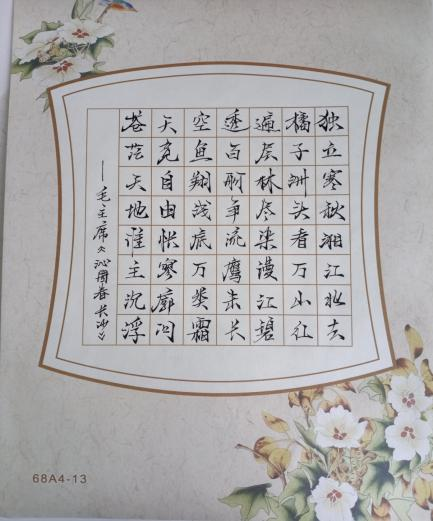 独立寒秋湘江北去
橘子洲头看万山红
遍层林尽染漫江碧
透百舸争流鹰击长
空鱼翔浅底万类霜
天竞自由怅寥廓问
苍茫大地谁主沉浮
——毛主席《沁园春长沙》
68A4-13